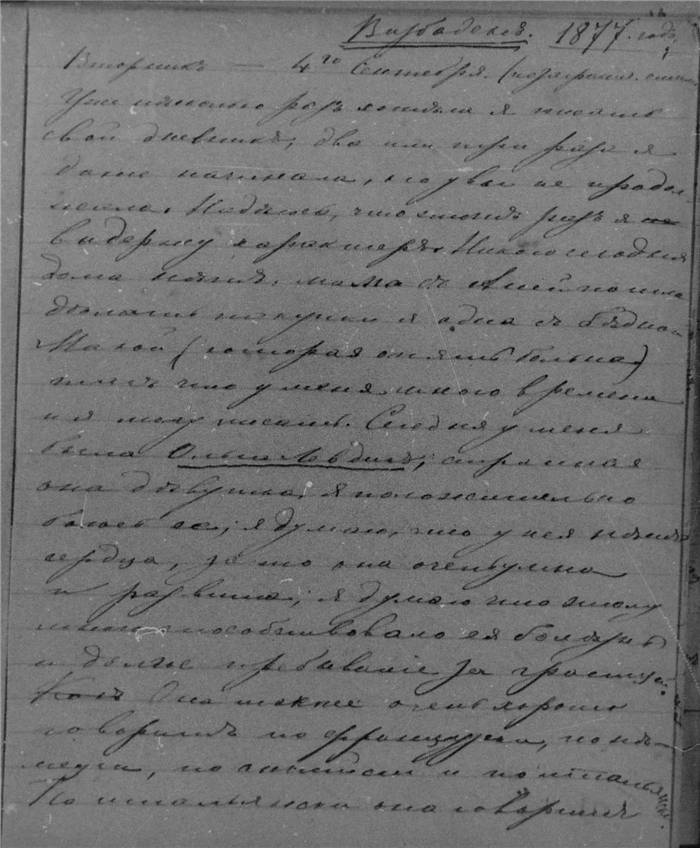 Висбаденъ. 1877. годъ,
Вторникъ — 4го Сентября.
Уже несколько разъ хотѣла я писать
свой дневникъ, два или три раза я
даже начинала, но увы не продол-
жала. Надѣюсь, что этотъ разъ я не
выдержу характеръ. Никого сегодня
дома нѣтъ. мама съ Аней пошла
дѣлать покупки я одна съ бѣдной
Машой (которая опять больна)
такъ что у меня много времени
и я могу писать. Сегодня у меня
была Ольга; странная
она дѣвушка, я положительно
боюсь ее; я думаю, что у нея нѣтъ
сердца, за то она очень умна
и развита; я думаю что этому
много способствовало ея болѣзнь
и долгое пребываніе за границей.
Какъ Она также очень хорошо
говоритъ по французски, по нѣ-
мецки, по англійски и по итальянски.
По итальянски она говоритъ